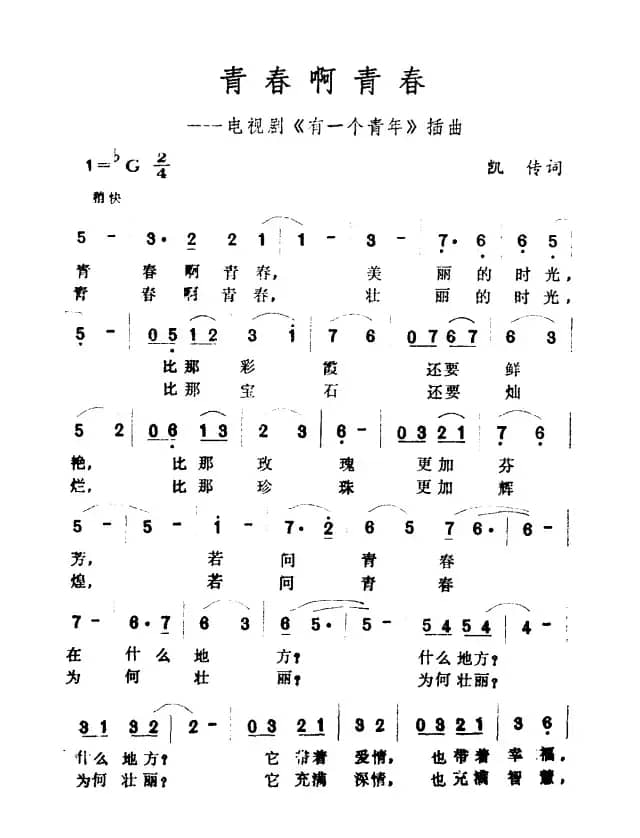 青春啊青春
----电视剧《有一个青年》插曲
1=♭G 2/4
凯 传词
稍快
5 - 3. 2 2 1 1 - 3 - 7. 6 6 5
青 春 啊 青 春, 美 丽 的 时 光,
青 春 啊 青 春, 壮 丽 的 时 光,
5 - 0 5 1 2 3 1 7 6 0 7 6 7 6 3
比 那 彩 霞 还 要 鲜
比 那 宝 石 还 要 灿
5 2 0 6 1 3 2 3 6 - 0 3 2 1 7 6
艳, 比 那 玫 瑰 更 加 芬
烂, 比 那 珍 珠 更 加 辉
5 - 5 - i - 7. 2 6 5 7 6. 6 -
芳, 若 问 青 春
煌, 若 问 青 春
7 - 6. 7 6 3 6 5. 5 - 5 4 5 4 4 -
在 什 么 地 方? 什么地方?
为 何 壮 丽? 为何壮丽?
3 1 3 2 2 - 0 3 2 1 3 2 0 3 2 1 3 6
什么 地方? 它 带着 爱情, 也 带着 幸 福,
为何 壮丽? 它 充满 深情, 也 充满 智 慧,